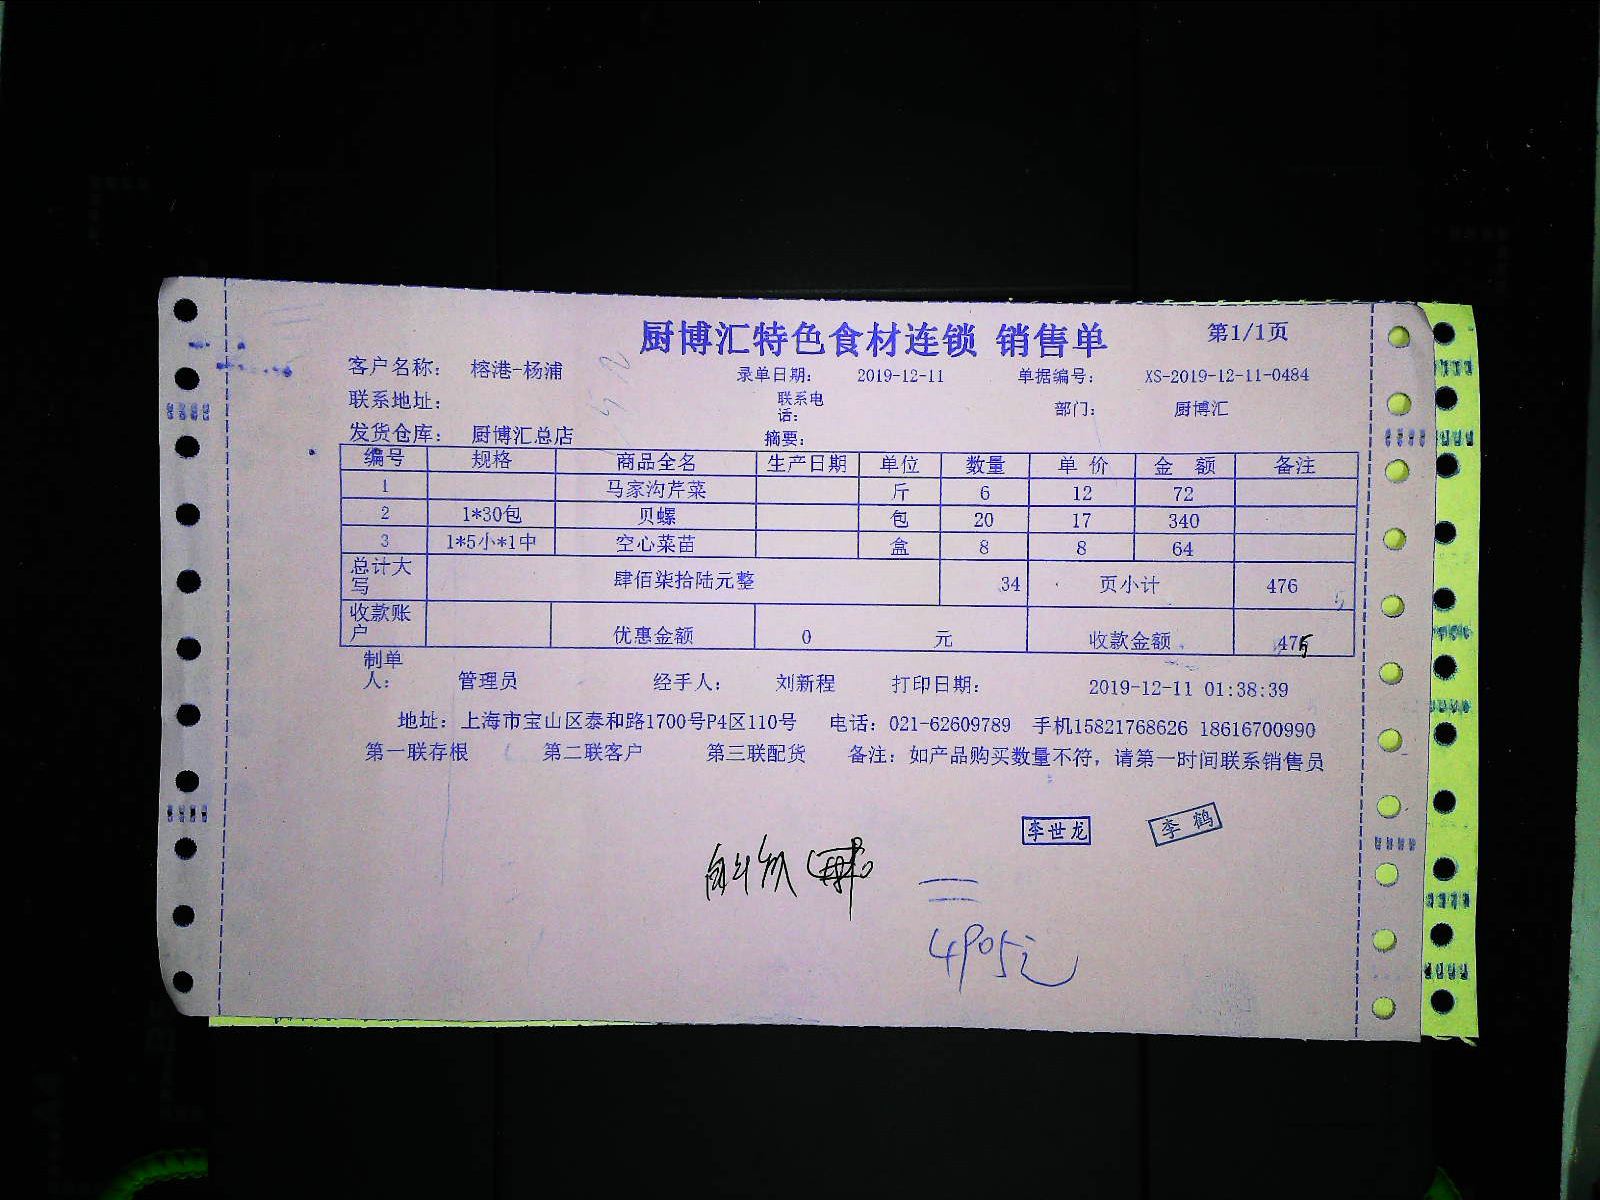 厨博汇特色食材连锁 销售单 第1/1页
客户名称: 榕港-杨浦 录单日期: 2019-12-11 单据编号: XS-2019-12-11-0484
联系地址: 联系电话: 部门: 厨博汇
发货仓库: 厨博汇总店 摘要:
编号 规格 商品全名 生产日期 单位 数量 单价 金额 备注
1 马家沟芹菜 斤 6 12 72
2 1*30包 贝螺 包 20 17 340
3 1*5小*1中 空心菜苗 盒 8 8 64
总计大写 肆佰柒拾陆元整 34 页小计 476
收款账户 优惠金额 0 元 收款金额 475
制单人: 管理员 经手人: 刘新程 打印日期: 2019-12-11 01:38:39
地址: 上海市宝山区泰和路1700号P4区110号 电话: 021-62609789 手机15821768626 18616700990
第一联存根 第二联客户 第三联配货 备注: 如产品购买数量不符, 请第一时间联系销售员
李世龙 李鹤